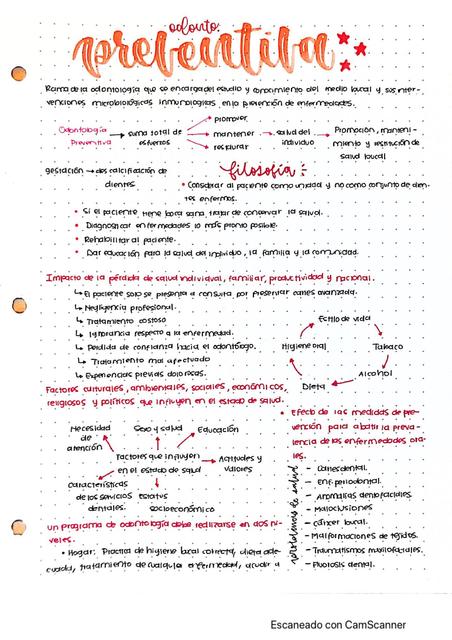 odonto.
preventiva
Rama de la odontología que se encarga del estudio y conocimiento del medio bucal y sus inter-
venciones microbiológicas inmunologicas en la prevención de enfermedades.
Odontología Preventiva
suma total de esfuerzos
promover
mantener
restaurar
salud del individuo
Promoción, manteni-
miento y restitución de
salud bucal
gestación → des calcificación de
dientes
filosofía:
• Considerar al paciente como unidad y no como conjunto de dien-
tes enfermos.
• Si el paciente tiene boca sana, tratar de conservar la salud.
• Diagnosticar enfermedades lo más pronto posible.
• Rehabilitar al paciente.
• Dar educación para la salud del individuo, la familia y la comunidad.
Impacto de la pérdida de salud individual, familiar, productividad y nacional.
↳ El paciente solo se presenta a consulta por presentar caries avanzada.
↳ Negligencia profesional.
↳ Tratamiento costoso
↳ Ignorancia respecto a la enfermedad.
↳ Perdida de confianza hacia el odontólogo.
↳ Tratamiento mal afectuado
↳ Experiencias previas dolorosas.
Estilo de vida
Tabaco
Alcohol
Dieta
Higiene oral
Factores culturales, ambientales, sociales, económicos,
religiosos y políticos que influyen en el estado de salud.
Necesidad
de
atención
Sexo y salud
Educación
Factores que influyen
en el estado de salud
Actitudes y
valores
Características
de los servicios
dentales.
Estatus
socioeconómico
• Efecto de las medidas de pre-
vención para abatir la preva-
lencia de las enfermedades ora-
les.
problemas de salud
- Caries dental.
- Enf. periodontal.
- Anomalías dentofaciales
- Maloclusiones
- Cáncer bucal.
- Malformaciones de tejidos.
- Traumatismos maxilofaciales.
- Fluorosis dental.
un programa de odontología debe realizarse en dos ni-
veles.
• Hogar: Practica de higiene bucal correcta, dieta ade-
cuada, tratamiento de cualquier enfermedad, acudir a
Escaneado con CamScanner